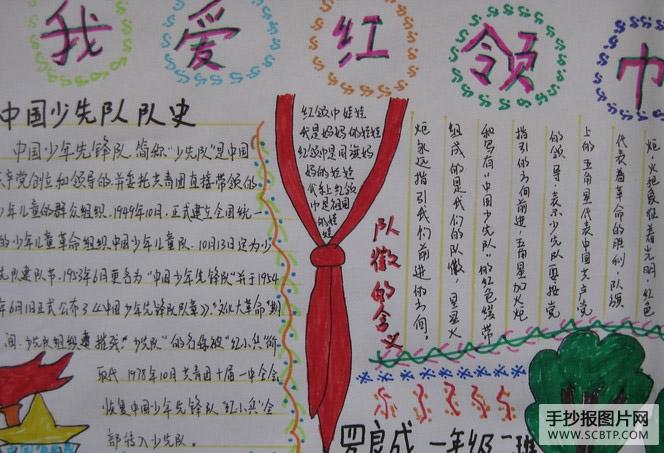 我爱红领巾
中国少先队队史
中国少年先锋队,简称"少先队"是中国
产党创立和领导的并委托共青团直接带领的
年儿童的群众组织.1949年10月,正式建立全国统一
的少年儿童革命组织中国少年儿童队.10月13日定为少
先队建队节.1953年6月更名为"中国少年先锋队"并于1954
年6月1日正式公布了《中国少年先锋队队章》."文化大革命"期
间,少先队组织遭摧残."少先队"的名称被"红小兵"所
取代.1978年10月共青团十届一中全会
恢复中国少年先锋队"红小兵"全
部转入少先队.
红领巾娃娃
我是妈妈的娃娃
红领巾是用祺妈
妈的娃娃
我红领
巾是祖国
的娃
娃
队徽的含义
炬,火把象征着光明,红色
代表着革命的胜利,队旗
上的五角星代表中国共产党
的领导,表示少先队要按党
指引的方向前进,五角星加火炬
和写有"中国少先队"的红色绶带
组成的是我们的队徽,星星火
炬永远指引我们前进的方向。
罗良成 一年级二班
手抄报图片网
WWW.SCBTP.COM